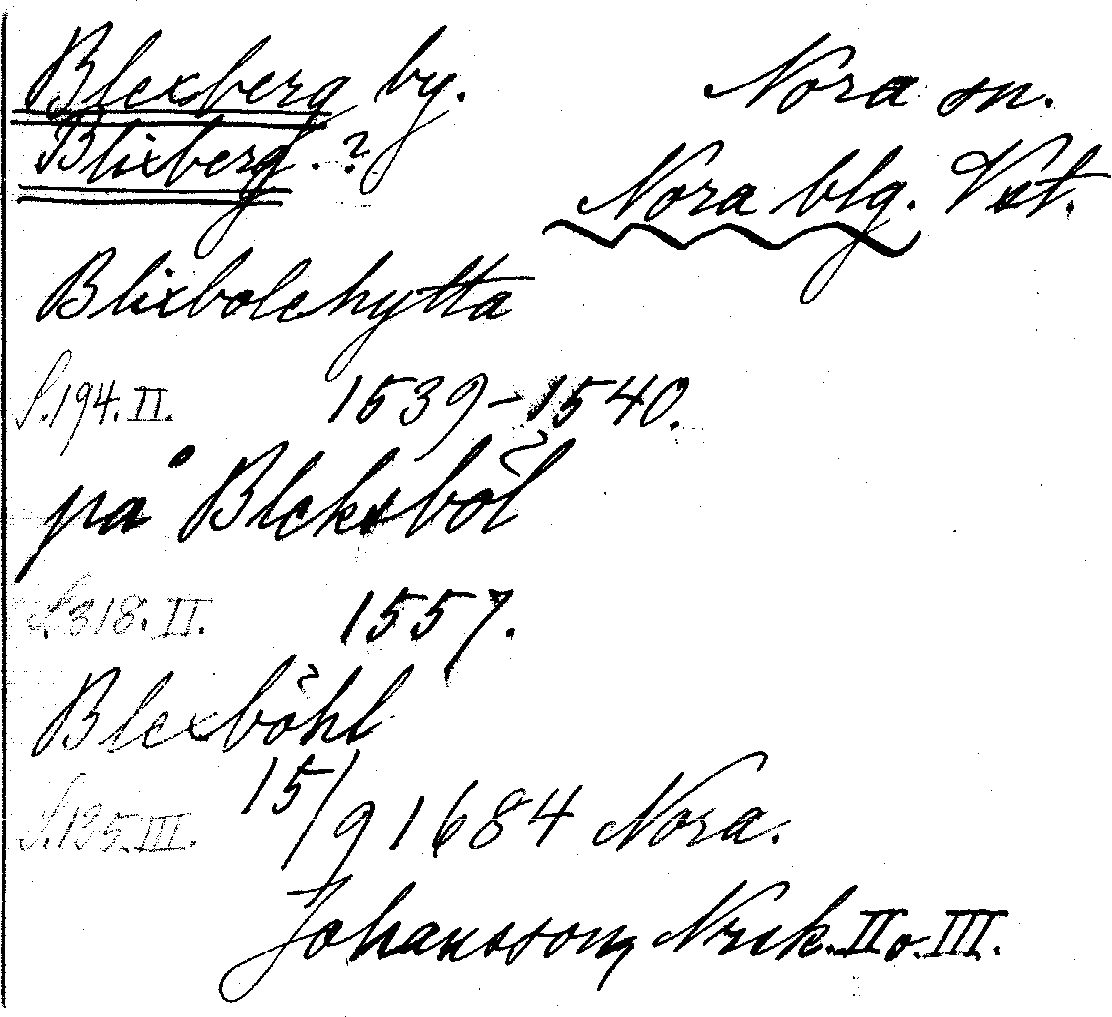 Blexberg by. Nora sn.
Blixberg.? Nora blg. Vst.
Blixbolehytta
S.194.II. 1539-1540.
på Bleksböl
S.318.II. 1557.
Blexböhl
S.135.III. 15/9 1684 Nora.
Johansson, Nrik. II o. III.